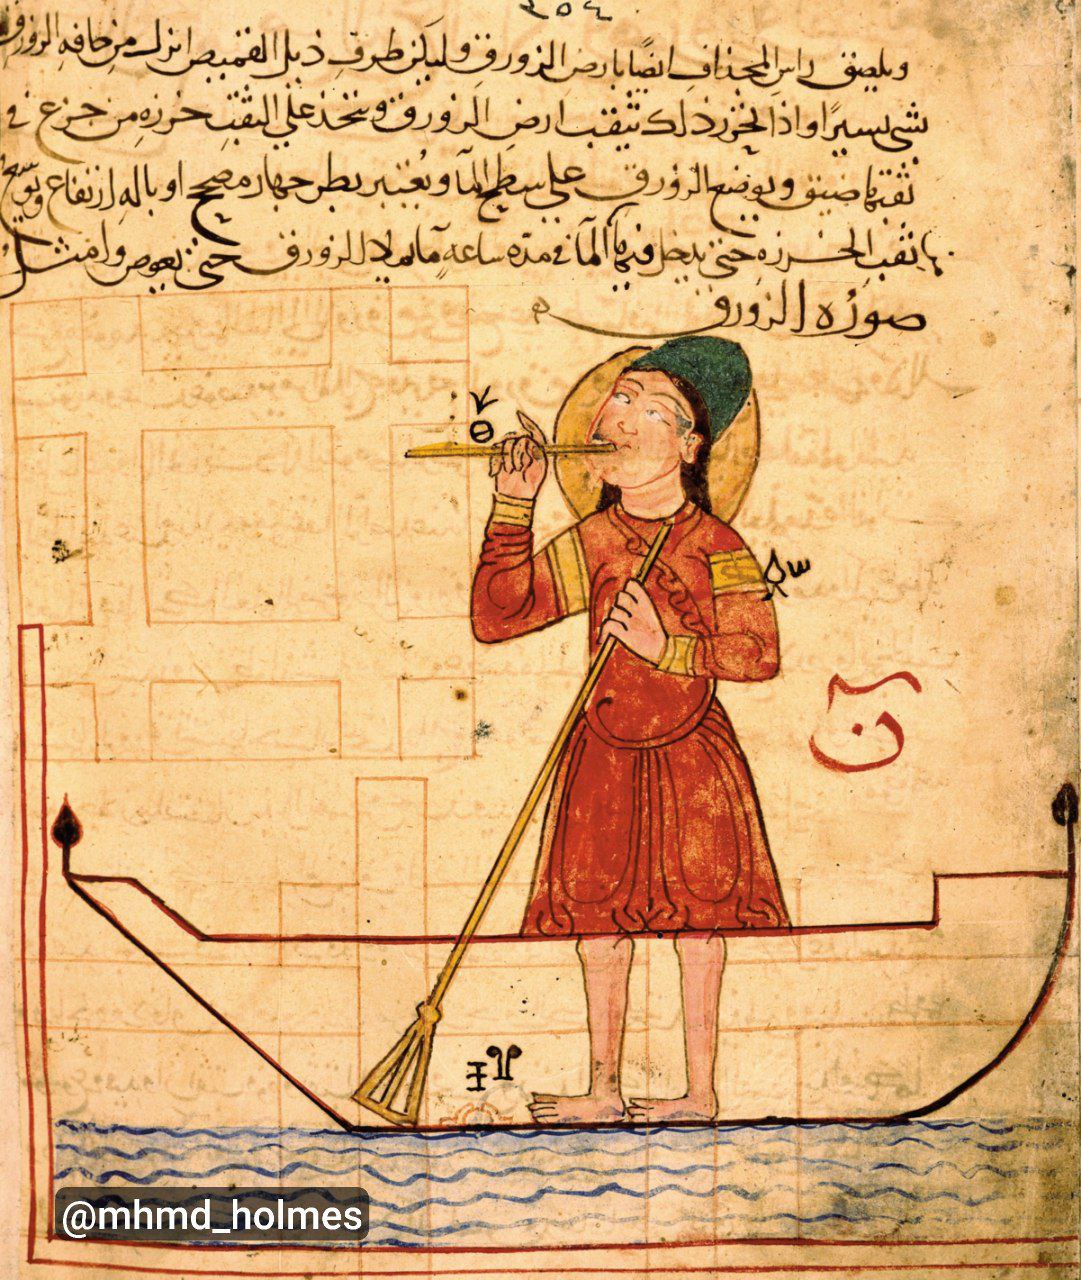 ٢٥٤
ويلصق راس المجذاف ايضًا بارض الزورق وليكن طرف ذيل القميص انزل من حافة الزورق
بشي يسير او اذا تحرر ذلك تثقب ارض الزورق ويتخذ على الثقب خرزه من جزع في
ثقبها ضيق ويوضع الزورق على سطح الما ويعتبر بطرجهار مصحح او باله ارتفاع ويوسع
ثقب الخرزه حتى يدخل فيها الما في مدة ساعة ما يملا الزورق حتى يغوص وامثل
صورة الزورق
ن
@mhmd_holmes